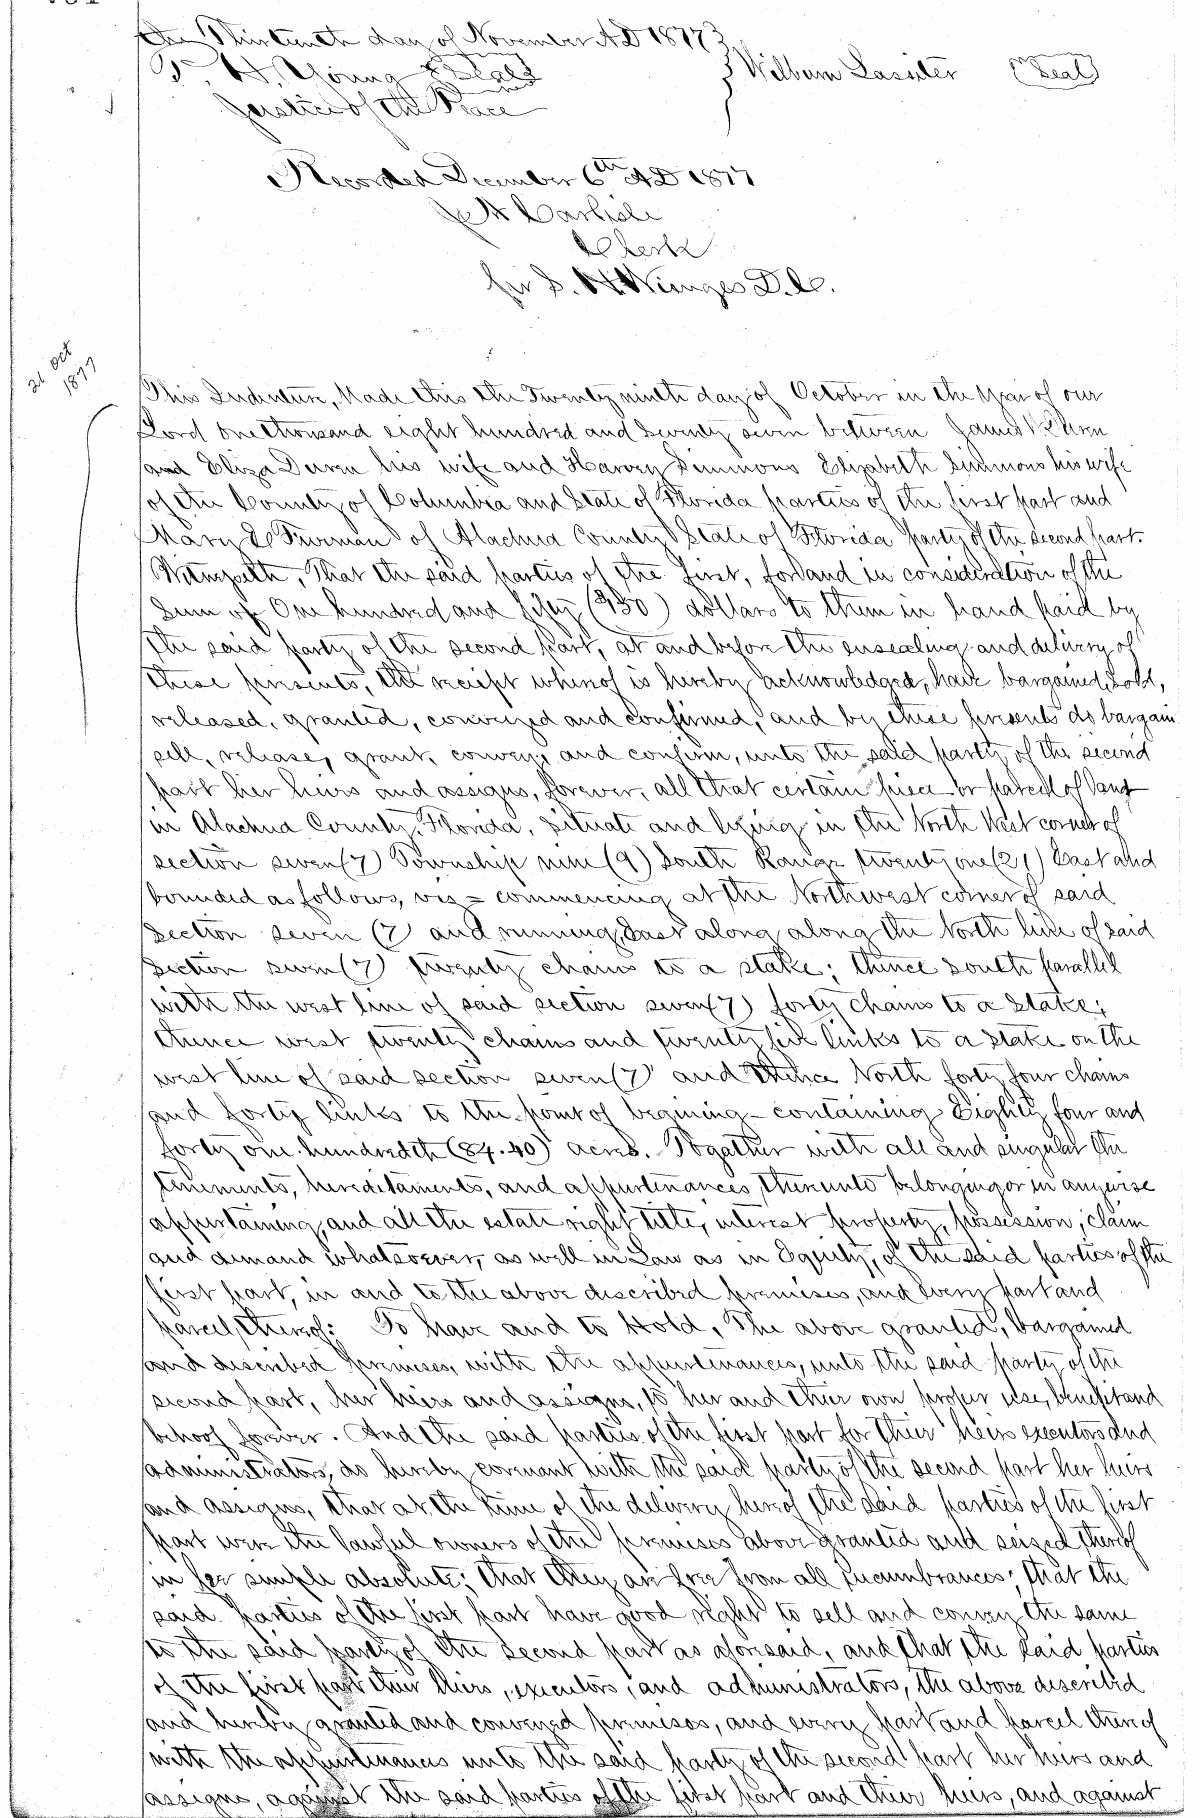 the Thirteenth day of November AD 1877
H. Young Seal Wilburn Lassiter (Seal)
Justice of the Peace
Recorded December 6th AD 1877
J A Carlisle
Clerk
for S. H Wienges D.C.
Oct
1877
This Indenture, Made this the Twenty ninth day of October in the Year of our
Lord one thousand eight hundred and seventy seven between James Duren
and Eliza Duren his wife and Harvey Simmons Elizabeth Simmons his wife
of the County of Columbia and State of Florida parties of the first part and
Mary E Furman of Alachua County State of Florida Party of the second part.
Witnesseth, That the said parties of the first, for and in consideration of the
Sum of One hundred and fifty ($150) dollars to them in hand paid by
the said party of the second part, at and before the ensealing and delivery of
these presents, the receipt whereof is hereby acknowledged, have bargained, sold,
released, granted, conveyed and confirmed, and by these presents do bargain
sell, release, grant, convey, and confirm, unto the said party of the second
part her heirs and assigns, forever, all that certain piece or parcel of land
in Alachua County, Florida, situate and lying in the North West corner of
section seven (7) Township nine (9) South Range twenty one (21) East and
bounded as follows, viz = commencing at the Northwest corner of said
section seven (7) and running East along along the North line of said
section seven (7) twenty chains to a stake; thence south parallel
with the west line of said section seven (7) forty chains to a stake;
thence west twenty chains and twenty five links to a stake on the
west line of said section seven (7) and thence North forty four chains
and forty links to the point of begining - containing Eighty four and
forty one hundredth (84.40) acres. Together with all and singular the
tenements, hereditaments, and appurtenances, thereunto belonging or in anywise
appertaining, and all the estate right title, interest property, possession, claim
and demand whatsoever, as well in Law as in Equity, of the said parties of the
first part, in and to the above described premises, and every part and
parcel thereof: To have and to Hold, The above granted, bargained
and described premises, with the appurtenances, unto the said party of the
second part, her heirs and assigns, to her and their own proper use, benefit and
behoof forever. And the said parties of the first part for their heirs executors and
administrators, do hereby covenant with the said party of the second part her heirs
and assigns, that at the time of the delivery hereof the said parties of the first
part were the lawful owners of the premises above granted and seized thereof
in fee simple absolute; that they are free from all encumbrances; that the
said parties of the first part have good right to sell and convey the same
to the said party of the second part as aforesaid, and that the said parties
of the first part their heirs, executors, and administrators, the above described
and hereby granted and conveyed premises, and every part and parcel thereof
with the appurtenances unto the said party of the second part her heirs and
assigns, against the said parties of the first part and their heirs, and against